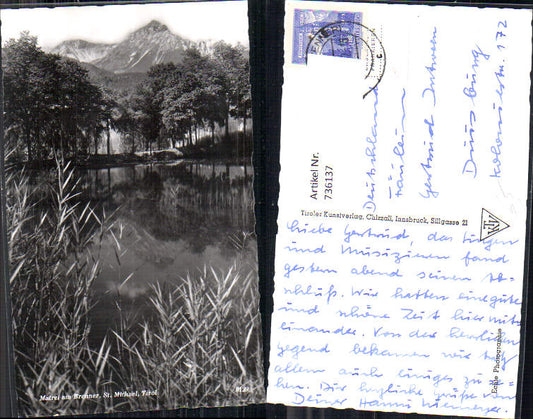 Matrei am Brenner, St. Michael, Tirol
Deutschland
Fräulein
Gertrud
Duisburg
172
Artikel Nr.
736137
Tiroler Kunstverlag, Chizzali, Innsbruck, Sillgasse 21
TKV
Echte Photographie
Liebe Gertrud, das Singen
und Musizieren fand
gestern abend seinen Ab-
schluß. Wir hatten eine gute
und schöne Zeit hier mit-
einander. Von der herrlichen
Gegend bekamen wir trotz
allem auch einiges zu se-
hen. Dir herzliche Grüße von
Deiner Hanni